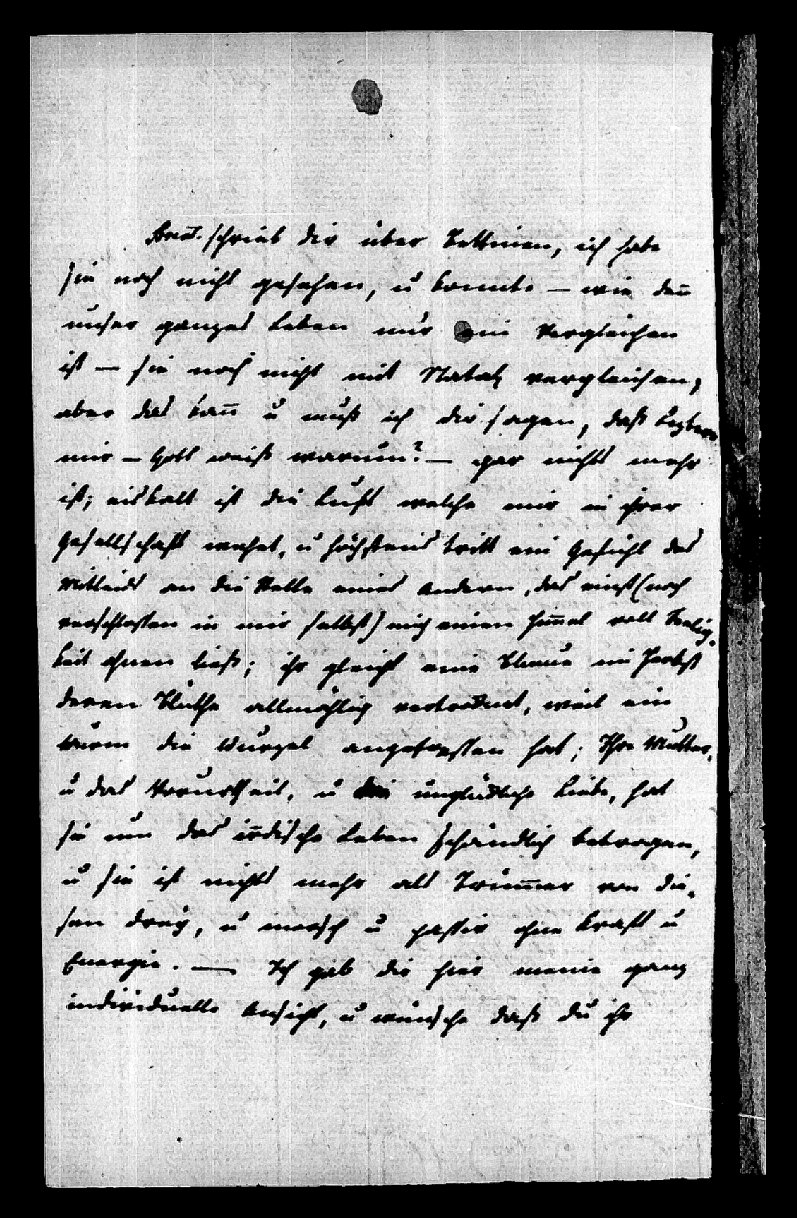 schrieb dir über Bettinen, ich habe
sie noch nicht gesehen, u konnte – wie den̅
unser ganzes Leben nur ein Vergleichen
ist – sie noch nicht mit vergleichen,
aber das kan̅ u muß ich dir sagen, daß
mir – Gott weiß warum? – gar nichts mehr
ist; eiskalt ist die Luft welche mir in ihrer
Gesellschaft wehet, u höchstens tritt ein Gefühl des
Mitleids an die Stelle eines Andern, das einst (noch
verschlossen in mir selbst) mich einen Him̅el voll Seelig-
keit ahnen ließ; sie gleicht eine Blume im Herbst
deren Blüthe allmählig vertroknet, weil ein
Wurm die Wurzel angefressen hat; Ihre Mutter,
u das Vorurtheil, u die unglükliche Liebe, hat
sie um das irdische Leben schändlich betrogen,
u sie ist nichts mehr als Trüm̅er von die-
sen drey, u morsch u passiv ohne Kraft u
Energie. — Ich gab dir hier meine ganz
individuelle Ansicht, u wünsche daß du ihr